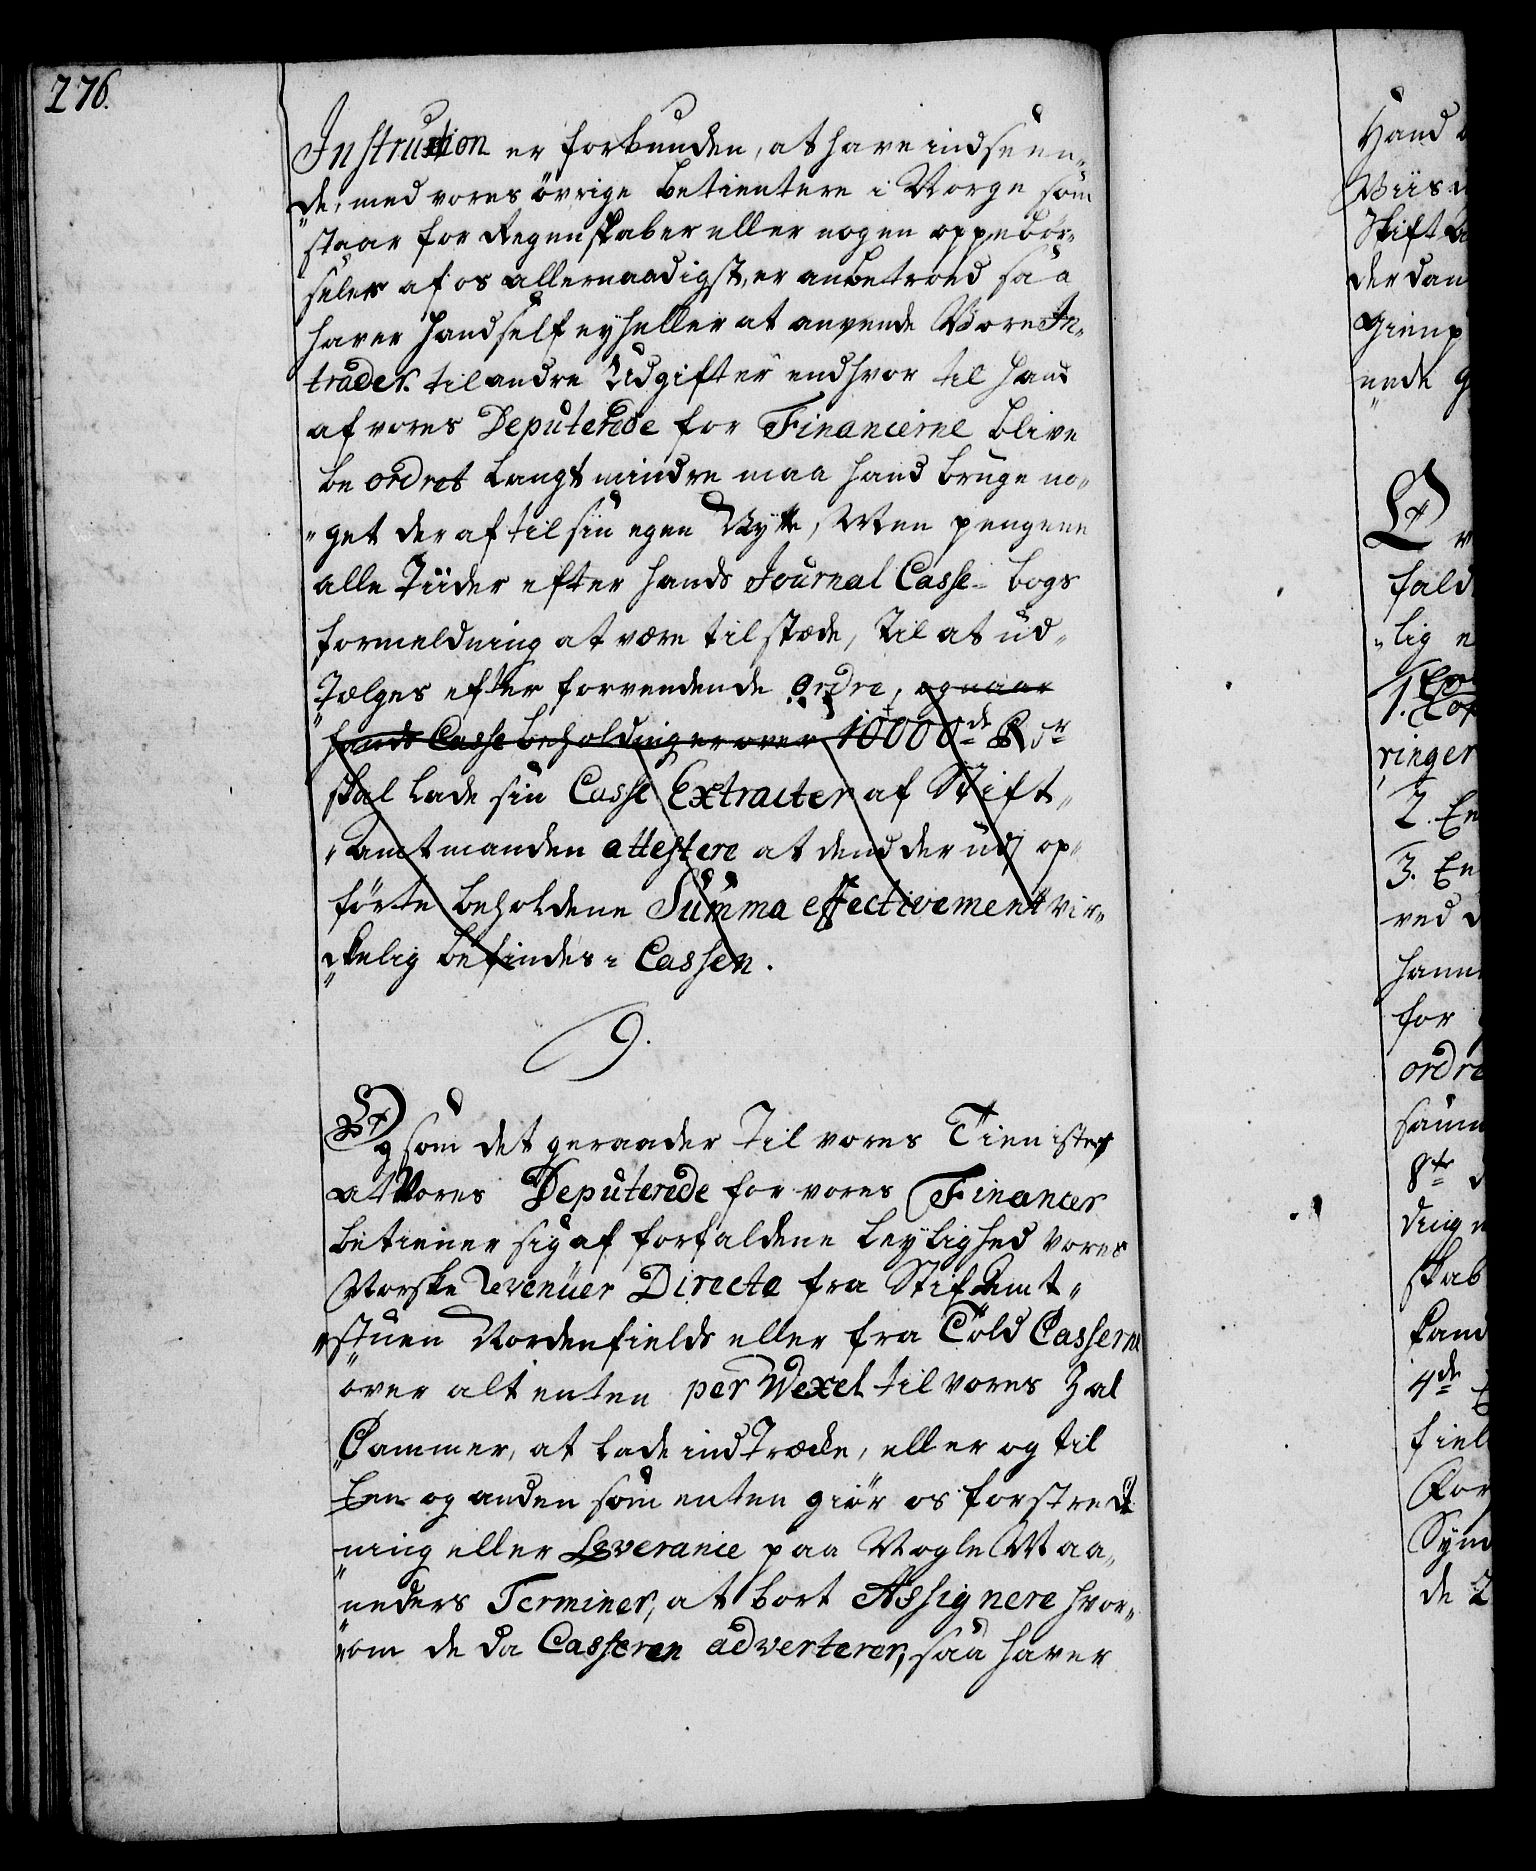 276.
Instruction er forbunden, at have indseen„
„de, med vores övrige betientere i Norge som
staar for Regenskaber eller nogen oppebör„
seler af os allernaadigst, er anbetroed saa
haver hand self ey heller at anvende Vore In„
trader til andre Udgifter end hvor til hand
af vores Deputerede for Financerne blive
be ordret langt mindre maa hand bruge no„
„get der af til sin egen Nytte, Men pengene
alle Tiider efter hands Journal Casse- bogs
formeldning at være til stæde, til at ud„
„tælges efter forvendende ordre, og naar
hands Casse beholdning er over 10000de Rdr
skal lade sin Casse Extracter af Stift„
„amtmanden attestere at dend der udj op„
förte beholdene Summa effectivement vir„
„ckelig befindes i Cassen.
9.
Og som det geraader til vores Tieniste,
at Vores Deputerede for vores Financer
betiener sig af forfaldene leylighed vores
Norske Revenüer Directe fra Stifamt„
„stuen Nordenfields eller fra Told Casserne
over alt enten per Wexel til vores Zal
Cammer, at lade indtræcke, eller og til
een og anden som enten giör os forstreck
„ning eller Leverance paa Nogle Maa„
„neders Terminer, at bort Assignere hvor„
„om de da Casseren adverterer, saa haver
Hand
Viis
Skift
der dan
nede
fald
„lig
1.
ringer
2. En
3. En
ved
for
ordre
8te
skab
4de
fiel
For
de 2